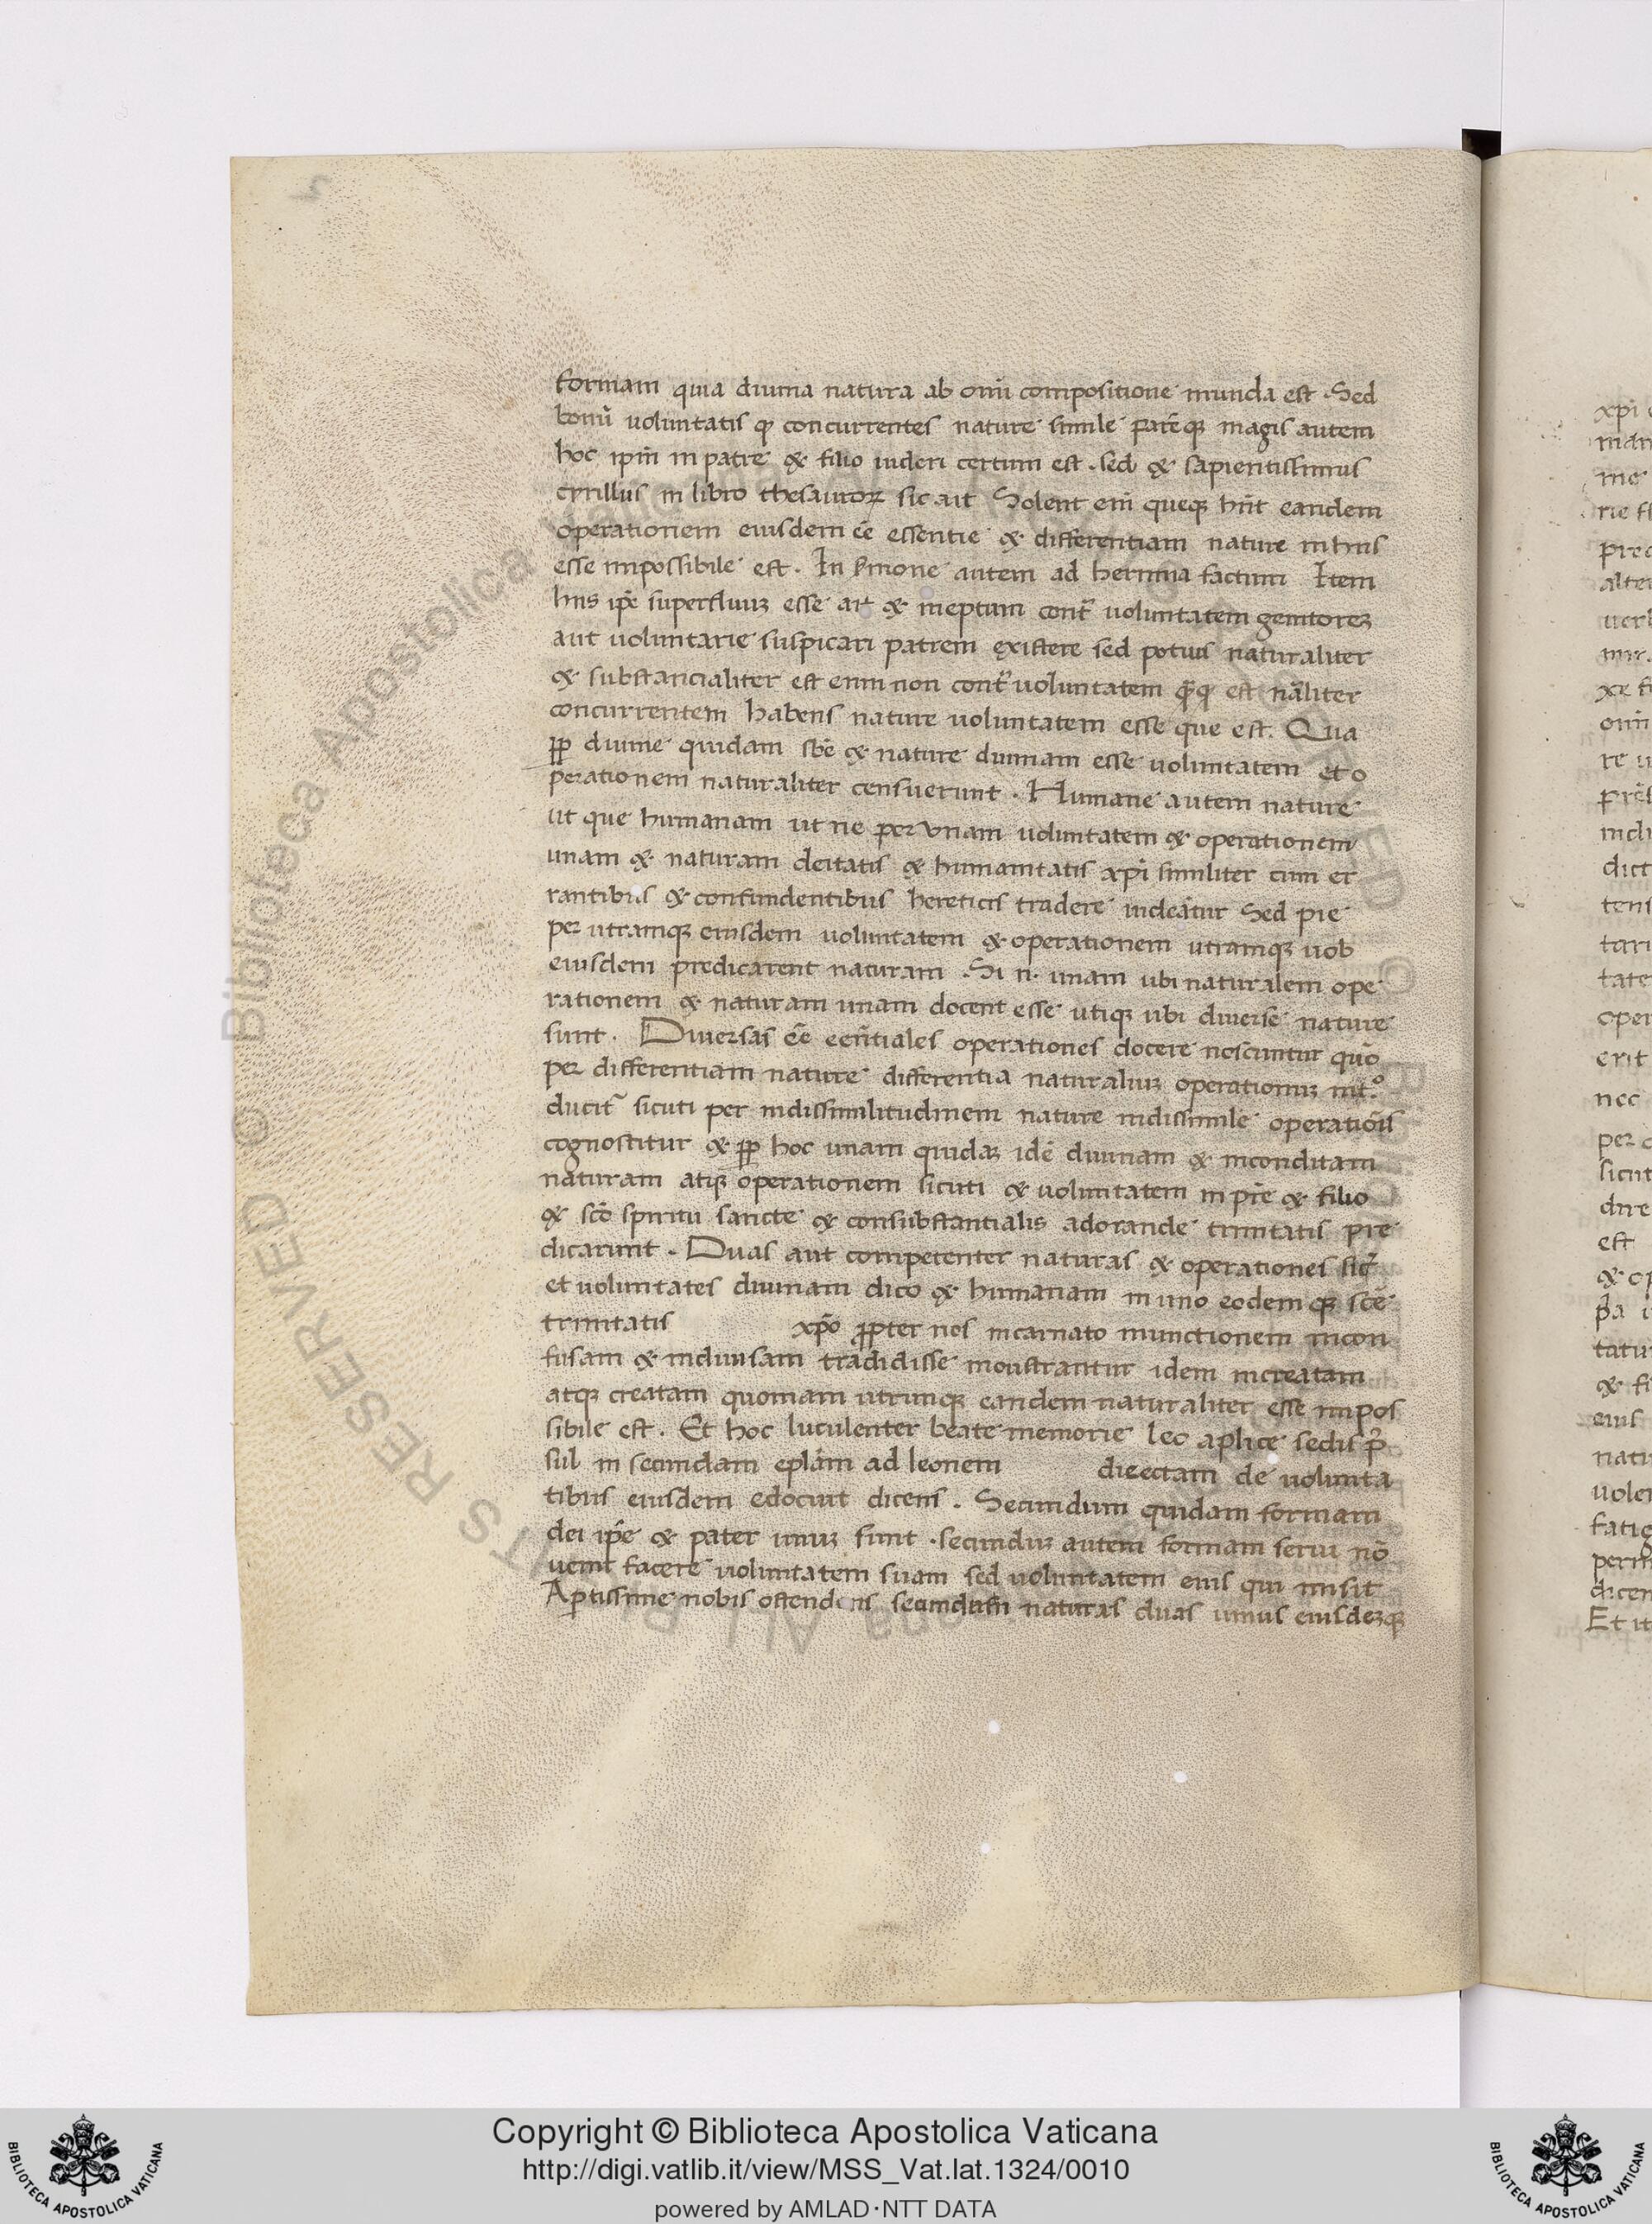 formam quia diuina natura ab oi͞ni compositione munda est Sed
bonū voluntatis qꝫ concurrentes nature simile patreqꝫ magis autem
hoc ip̄m in patre & filio uideri certum est . sed & sapientissimus
cyrillus in libro thesauroꝝ sic ait Solent eni͞ queqꝫ hn̄t eandem
operationem eiusdem eē essentie & differentiam nature in hiis
esse impossibile est . In ẜmone autem ad hermia factum Item
hiis ip̄e superfluuꝫ esse ait & ineptum cont᷑ voluntatem genitoreꝫ
aut voluntarie suspicari patrem existere sed potius naturaliter
& substancialiter est enim non cont᷑ voluntatem est nāliter
concurrentem habens nature voluntatem esse que est . Qua
ꝓp̄ diuine quidam sb̄e & nature diuinam esse voluntatem et o
perationem naturaliter censuerunt . Humane autem nature
ut que humanam ut ne per vnam voluntatem & operationem
unam & naturam deitatis & humanitatis xp̄i similiter cum er
rantibus & confundentibus hereticis tradere uideātur Sed pie
per utramqꝫ eiusdem voluntatem & operationem utramqꝫ uob
eiusdem predicarent naturam . Si n. unam ubi naturalem ope
rationem & naturam unam docent esse utiqꝫ ubi diuerse nature
sunt . Diuersas eē een̄tiales operationes docere noscuntur quō
per differentiam nature differentia naturaliuꝫ operationuꝫ int͛o
ducit᷑ sicuti per indissimilitudinem nature indissimile operatiōis
cognoscitur & ꝓp̄ hoc unam quidaꝫ idē diuinam & inconditam
naturam atqꝫ operationem sicuti & voluntatem in pr̄e & filio
& sc̄o spiritu sancte & consubstantialis adorande trinitatis pre
dicarunt . Duas aut competenter naturas & operationes sic᷑
et voluntates diuinam dico & humanam in uno eodemqꝫ sc̄e
trinitatis xp̄o propter nos incarnato iniunctionem incon
fusam & indiuisam tradidisse monstrantur idem increatam
atqꝫ creatam quoniam utrunqꝫ eandem naturaliter esse impos
sibile est . Et hoc luculenter beate memorie leo aplice sedis p̄
sul in secundam eplām ad leonem directam de volunta
tibus eiusdem edocuit dicens . Secundum quidam formam
dei ip̄e & pater unuꝫ sunt . secunduꝫ autem formam serui nō
uenit facere voluntatem suam sed voluntatem eius qui misit
Aptissime nobis ostendens secundum naturas duas unius eiusdeꝫqꝫ
Copyright © Biblioteca Apostolica Vaticana
http://digi.vatlib.it/view/MSS_Vat.lat.1324/0010
powered by AMLAD·NTT DATA